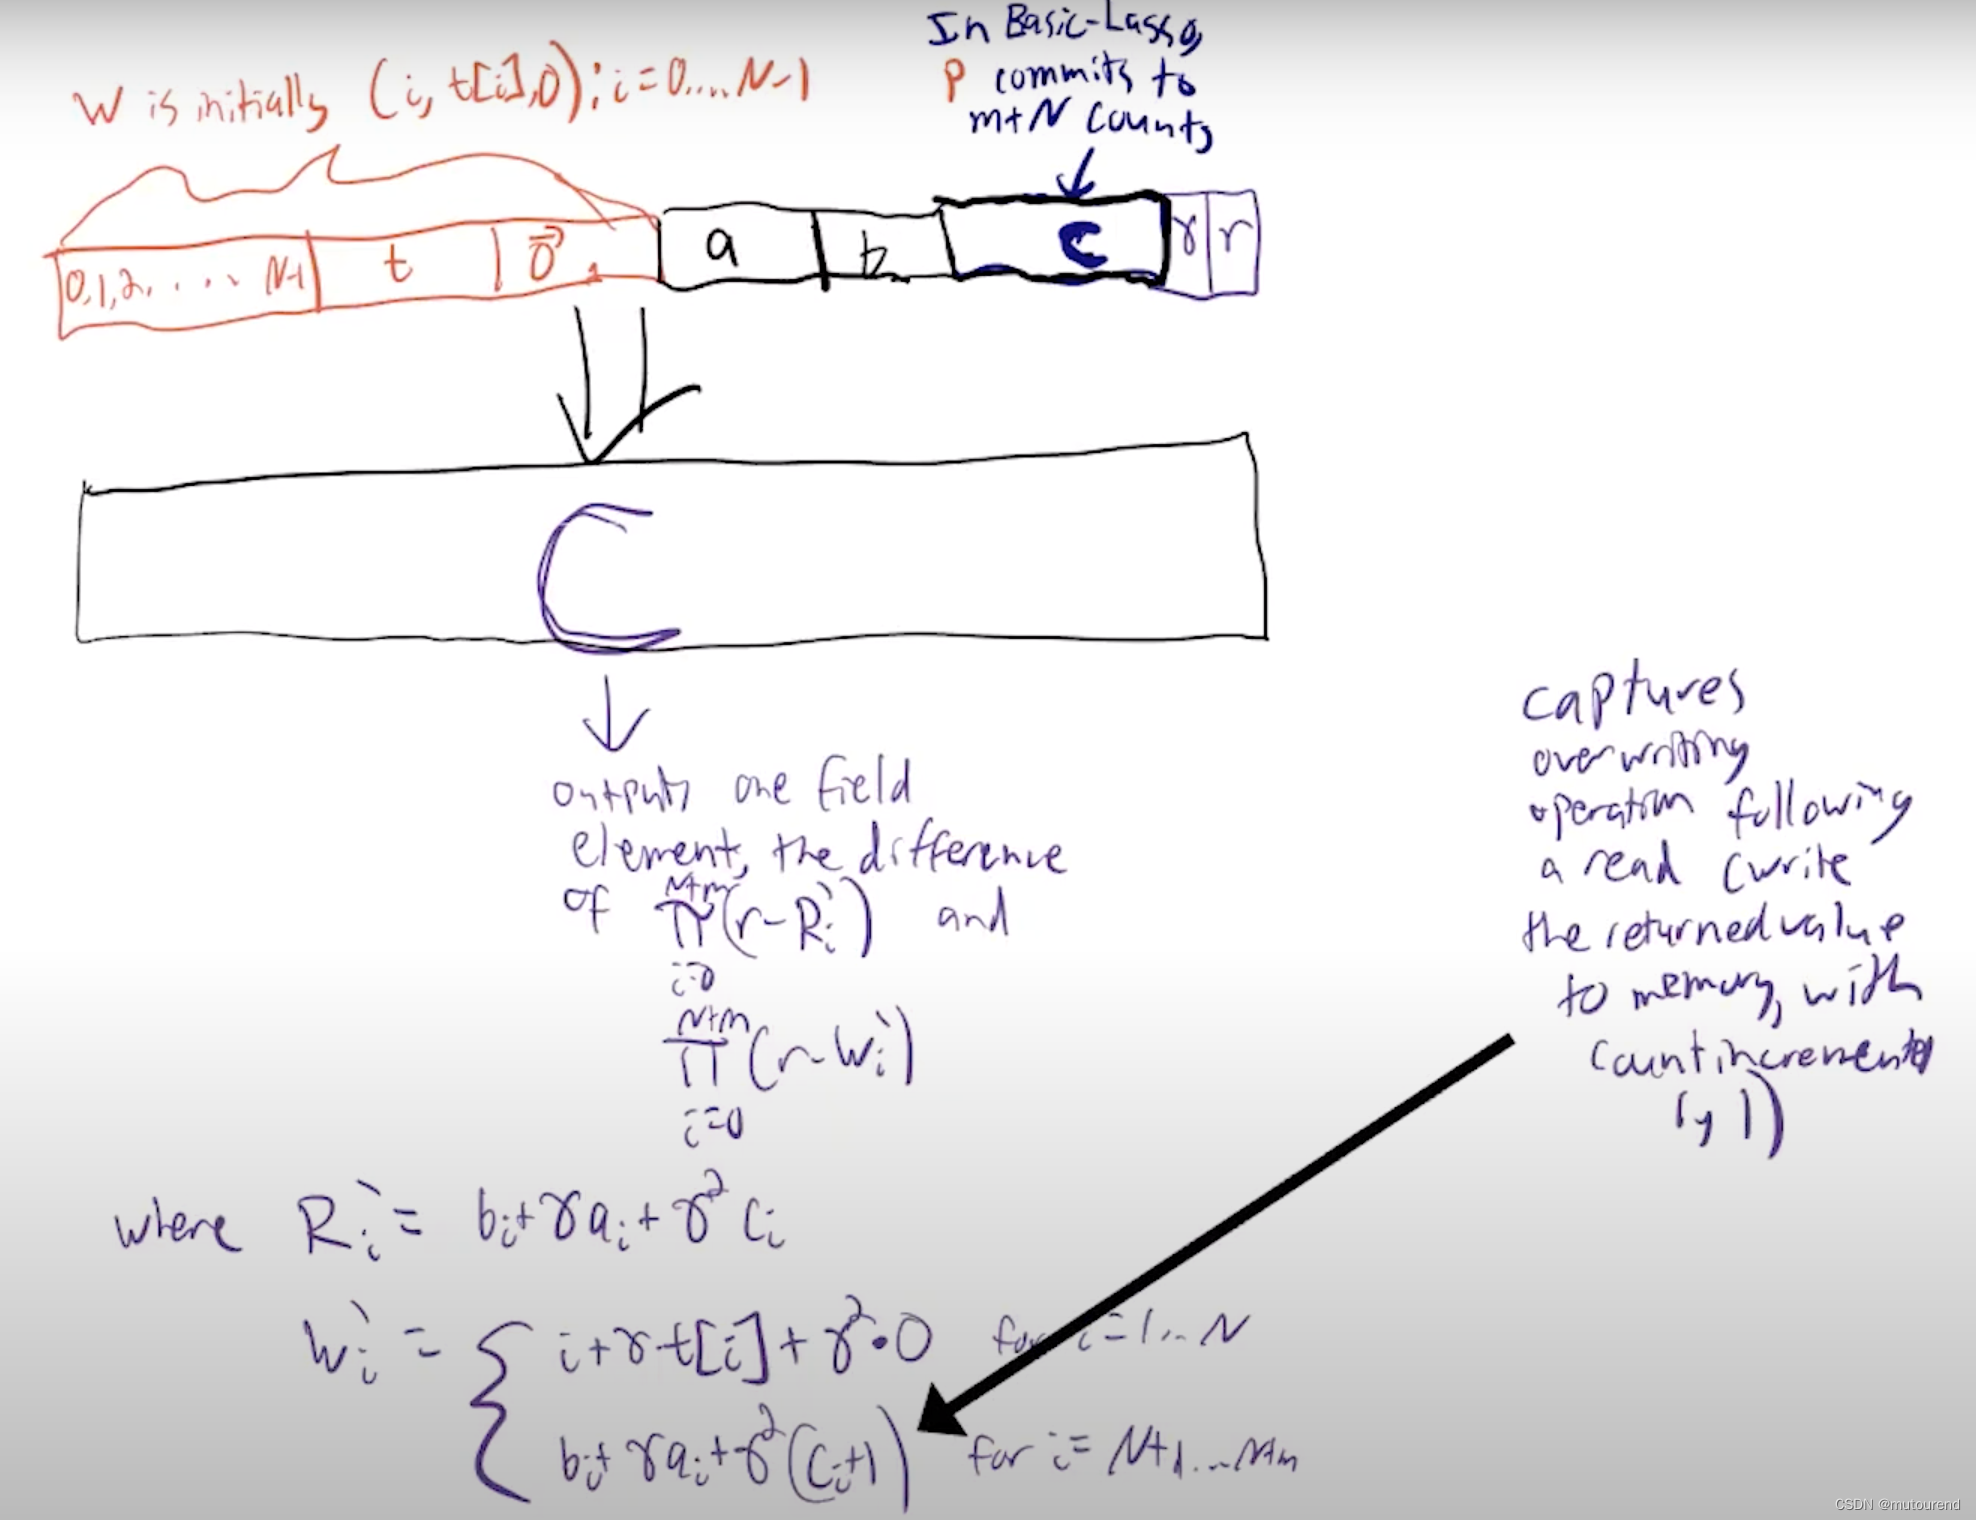 In Basic-Lasso,
P commits to
m+N counts
W is initially (i, t[i], 0); i=0....N-1
0,1,2, . . . . N-1 | t | 0⃗ | a | b | c | γ | r
C
outputs one field
element, the difference
of ∏_{i=0}^{N+m} (r-R_i`) and
∏_{i=0}^{N+m} (r-W_i`)
captures
overwriting
operation following
a read (write
the returned value
to memory, with
count incremented
by 1)
where R_i` = b_i + γa_i + γ² c_i
W_i` = { i + γ·t[i] + γ²·0 for i=1...N
b_i + γa_i + γ²(c_i+1) for i= N+1...N+m
CSDN @mutourend